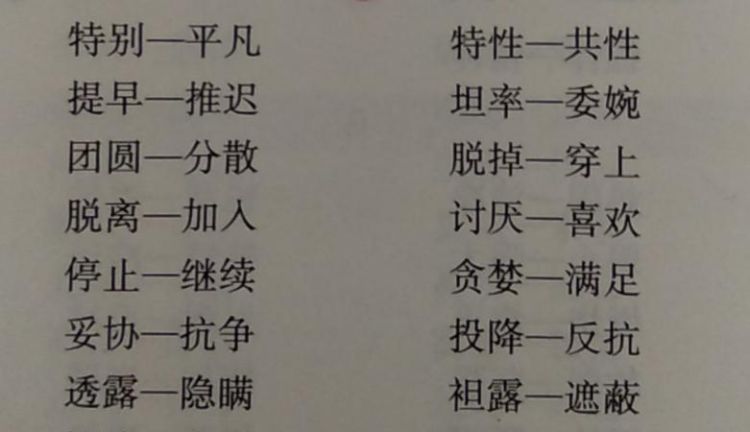 特别—平凡 特性—共性
提早—推迟 坦率—委婉
团圆—分散 脱掉—穿上
脱离—加入 讨厌—喜欢
停止—继续 贪婪—满足
妥协—抗争 投降—反抗
透露—隐瞒 袒露—遮蔽